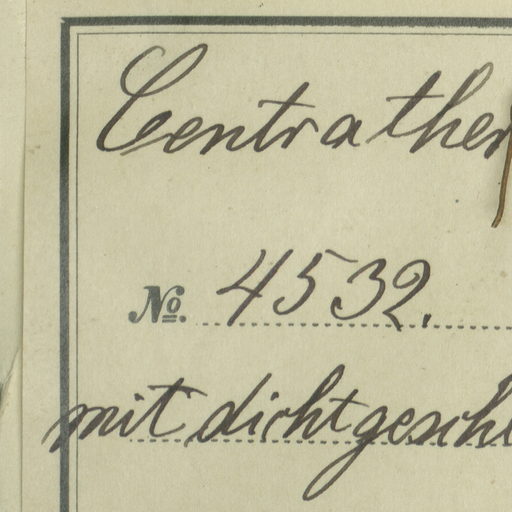 Centrather
No. 4532.
mit dichtgeschl